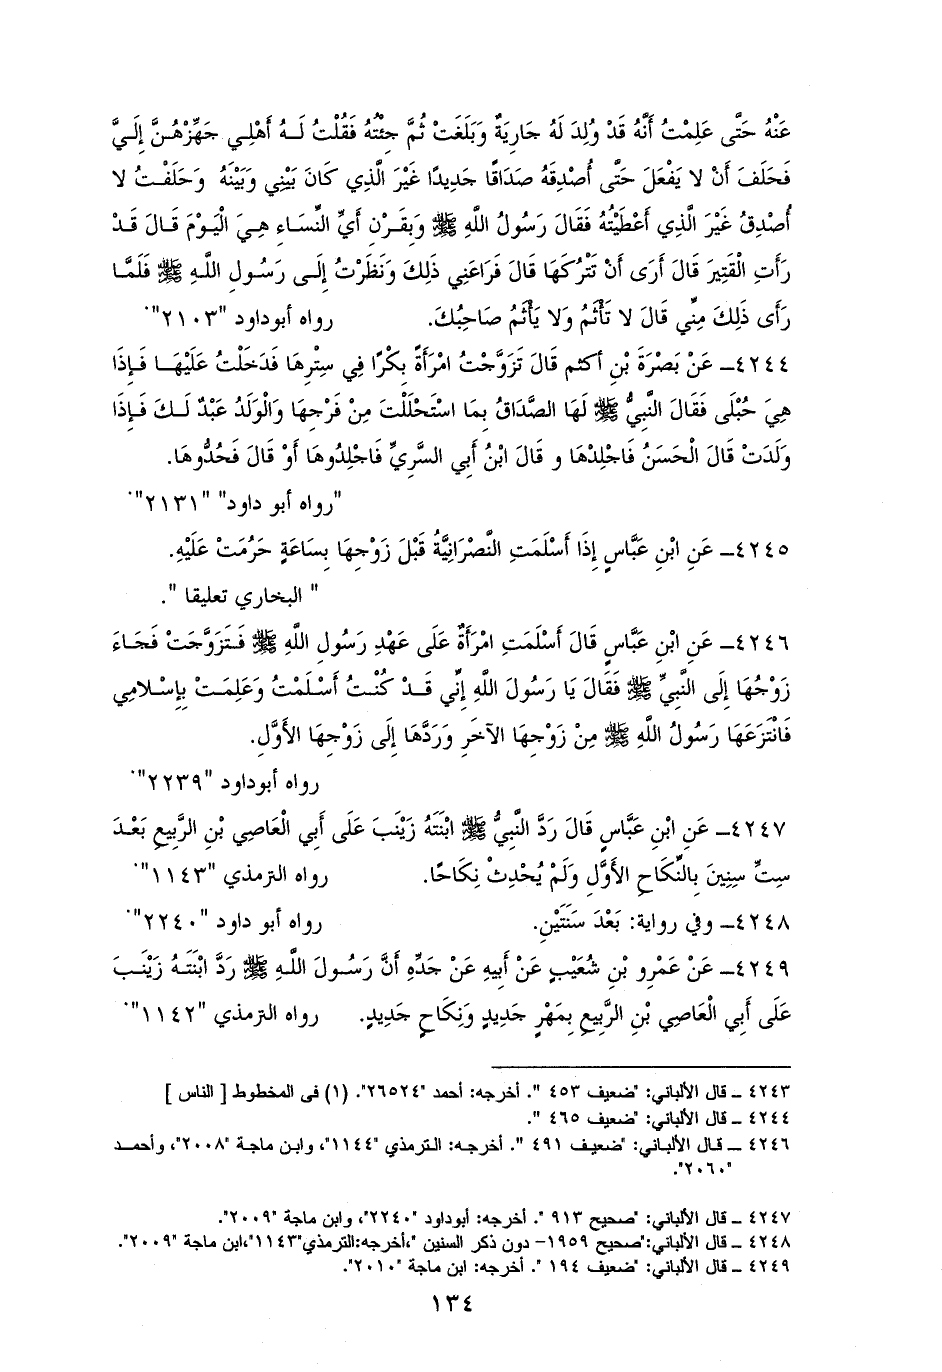 عَنْهُ حَتَّى عَلِمْتُ أَنَّهُ قَدْ وُلِدَ لَهُ جَارِيَةٌ وَبَلَغَتْ ثُمَّ جِئْتُهُ فَقُلْتُ لَـهُ أَهْلِـي جَهِّزْهُـنَّ إِلَـيَّ
فَحَلَفَ أَنْ لا يَفْعَلَ حَتَّى أُصْدِقَهُ صَدَاقًا جَدِيدًا غَيْرَ الَّذِي كَانَ بَيْنِي وَبَيْنَهُ وَحَلَفْـتُ لا
أُصْدِقُ غَيْرَ الَّذِي أَعْطَيْتُهُ فَقَالَ رَسُولُ اللَّهِ ﷺ وَبِقَـرْنِ أَيِّ النِّسَـاءِ هِـيَ الْيَـوْمَ قَـالَ قَـدْ
رَأَتِ الْقَتِيرَ قَالَ أَرَى أَنْ تَتْرُكَهَا قَالَ فَرَاعَنِي ذَلِكَ وَنَظَرْتُ إِلَـى رَسُـولِ اللَّـهِ ﷺ فَلَمَّـا
رَأَى ذَلِكَ مِنِّي قَالَ لا تَأْثَمُ وَلا يَأْثَمُ صَاحِبُكَ. رواه أبوداود "٢١٠٣".
٤٢٤٤ـ عَنْ بَصْرَةَ بْنِ أكثم قَالَ تَزَوَّجْتُ امْرَأَةً بِكْرًا فِي سِتْرِهَا فَدَخَلْتُ عَلَيْهَـا فَـإِذَا
هِيَ حُبْلَى فَقَالَ النَّبِيُّ ﷺ لَهَا الصَّدَاقُ بِمَا اسْتَحْلَلْتَ مِنْ فَرْجِهَا وَالْوَلَدُ عَبْدٌ لَـكَ فَـإِذَا
وَلَدَتْ قَالَ الْحَسَنُ فَاجْلِدْهَا و قَالَ ابْنُ أَبِي السَّرِيِّ فَاجْلِدُوهَا أَوْ قَالَ فَحُدُّوهَا.
"رواه أبو داود" "٢١٣١".
٤٢٤٥ـ عَنِ ابْنِ عَبَّاسٍ إِذَا أَسْلَمَتِ النَّصْرَانِيَّةُ قَبْلَ زَوْجِهَا بِسَاعَةٍ حَرُمَتْ عَلَيْهِ.
" البخاري تعليقا ".
٤٢٤٦ـ عَنِ ابْنِ عَبَّاسٍ قَالَ أَسْلَمَتِ امْرَأَةٌ عَلَى عَهْدِ رَسُولِ اللَّهِ ﷺ فَـتَزَوَّجَتْ فَجَـاءَ
زَوْجُهَا إِلَى النَّبِيِّ ﷺ فَقَالَ يَا رَسُولَ اللَّهِ إِنِّي قَـدْ كُنْـتُ أَسْـلَمْتُ وَعَلِمَـتْ بِإِسْـلامِي
فَانْتَزَعَهَا رَسُولُ اللَّهِ ﷺ مِنْ زَوْجِهَا الآخَرِ وَرَدَّهَا إِلَى زَوْجِهَا الأَوَّلِ.
رواه أبوداود "٢٢٣٩".
٤٢٤٧ـ عَنِ ابْنِ عَبَّاسٍ قَالَ رَدَّ النَّبِيُّ ﷺ ابْنَتَهُ زَيْنَبَ عَلَى أَبِي الْعَاصِي بْنِ الرَّبِيعِ بَعْـدَ
سِتِّ سِنِينَ بِالنِّكَاحِ الأَوَّلِ وَلَمْ يُحْدِثْ نِكَاحًا. رواه الترمذي "١١٤٣".
٤٢٤٨ـ وفي رواية: بَعْدَ سَنَتَيْنِ. رواه أبو داود "٢٢٤٠".
٤٢٤٩ـ عَنْ عَمْرِو بْنِ شُعَيْبٍ عَنْ أَبِيهِ عَنْ جَدِّهِ أَنَّ رَسُـولَ اللَّـهِ ﷺ رَدَّ ابْنَتَـهُ زَيْنَـبَ
عَلَى أَبِي الْعَاصِي بْنِ الرَّبِيعِ بِمَهْرٍ جَدِيدٍ وَنِكَاحٍ جَدِيدٍ. رواه الترمذي "١١٤٢".
٤٢٤٣ ـ قال الألباني: "ضعيف ٤٥٣ ". أخرجه: أحمد "٢٦٥٢٤". (١) فى المخطوط [ الناس ]
٤٢٤٤ ـ قال الألباني: "ضعيف ٤٦٥ ".
٤٢٤٦ ـ قـال الألبـاني: "ضعيـف ٤٩١ ". أخرجـه: الـترمذي "١١٤٤"، وابـن ماجـة "٢٠٠٨"، وأحمـد
"٢٠٦٠".
٤٢٤٧ ـ قال الألباني: "صحيح ٩١٣ ". أخرجه: أبوداود "٢٢٤٠"، وابن ماجة "٢٠٠٩".
٤٢٤٨ ـ قال الألباني:"صحيح ١٩٥٩- دون ذكر السنين "،أخرجه:الترمذي"١١٤٣"،ابن ماجة "٢٠٠٩".
٤٢٤٩ ـ قال الألباني: "ضعيف ١٩٤ ". أخرجه: ابن ماجة "٢٠١٠".
١٣٤